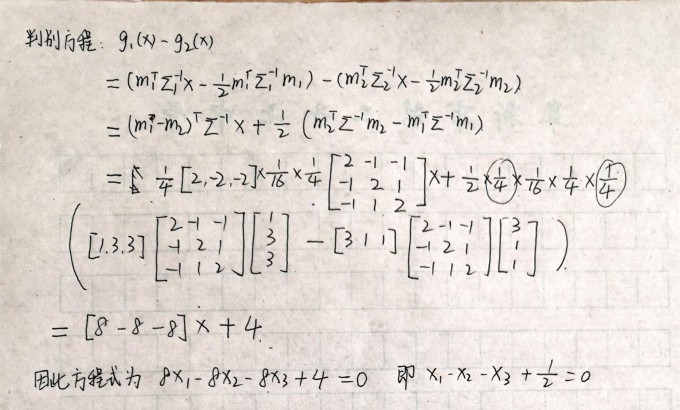 判别方程: g₁(x) - g₂(x)
= (m₁ᵀΣ₁⁻¹x - 1/2 m₁ᵀΣ₁⁻¹m₁) - (m₂ᵀΣ₂⁻¹x - 1/2 m₂ᵀΣ₂⁻¹m₂)
= (m₁-m₂)ᵀΣ⁻¹x + 1/2 (m₂ᵀΣ⁻¹m₂ - m₁ᵀΣ⁻¹m₁)
= 1/4 [2,-2,-2] × 1/16 × 1/4 [2 -1 -1; -1 2 1; -1 1 2] x + 1/2 × 1/4 × 1/16 × 1/4 × 1/4
([1,3,3] [2 -1 -1; -1 2 1; -1 1 2] [1; 3; 3] - [3 1 1] [2 -1 -1; -1 2 1; -1 1 2] [3; 1; 1])
= [8 -8 -8] x + 4
因此方程式为 8x₁-8x₂-8x₃+4=0 即 x₁-x₂-x₃+1/2=0